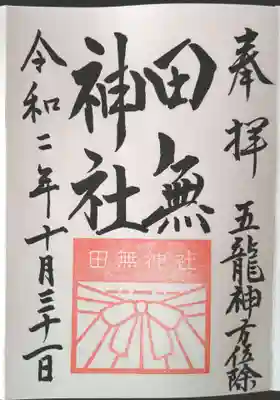 奉拝
五龍神方位除
田無
神社
田無神社
令和二年十月三十一日